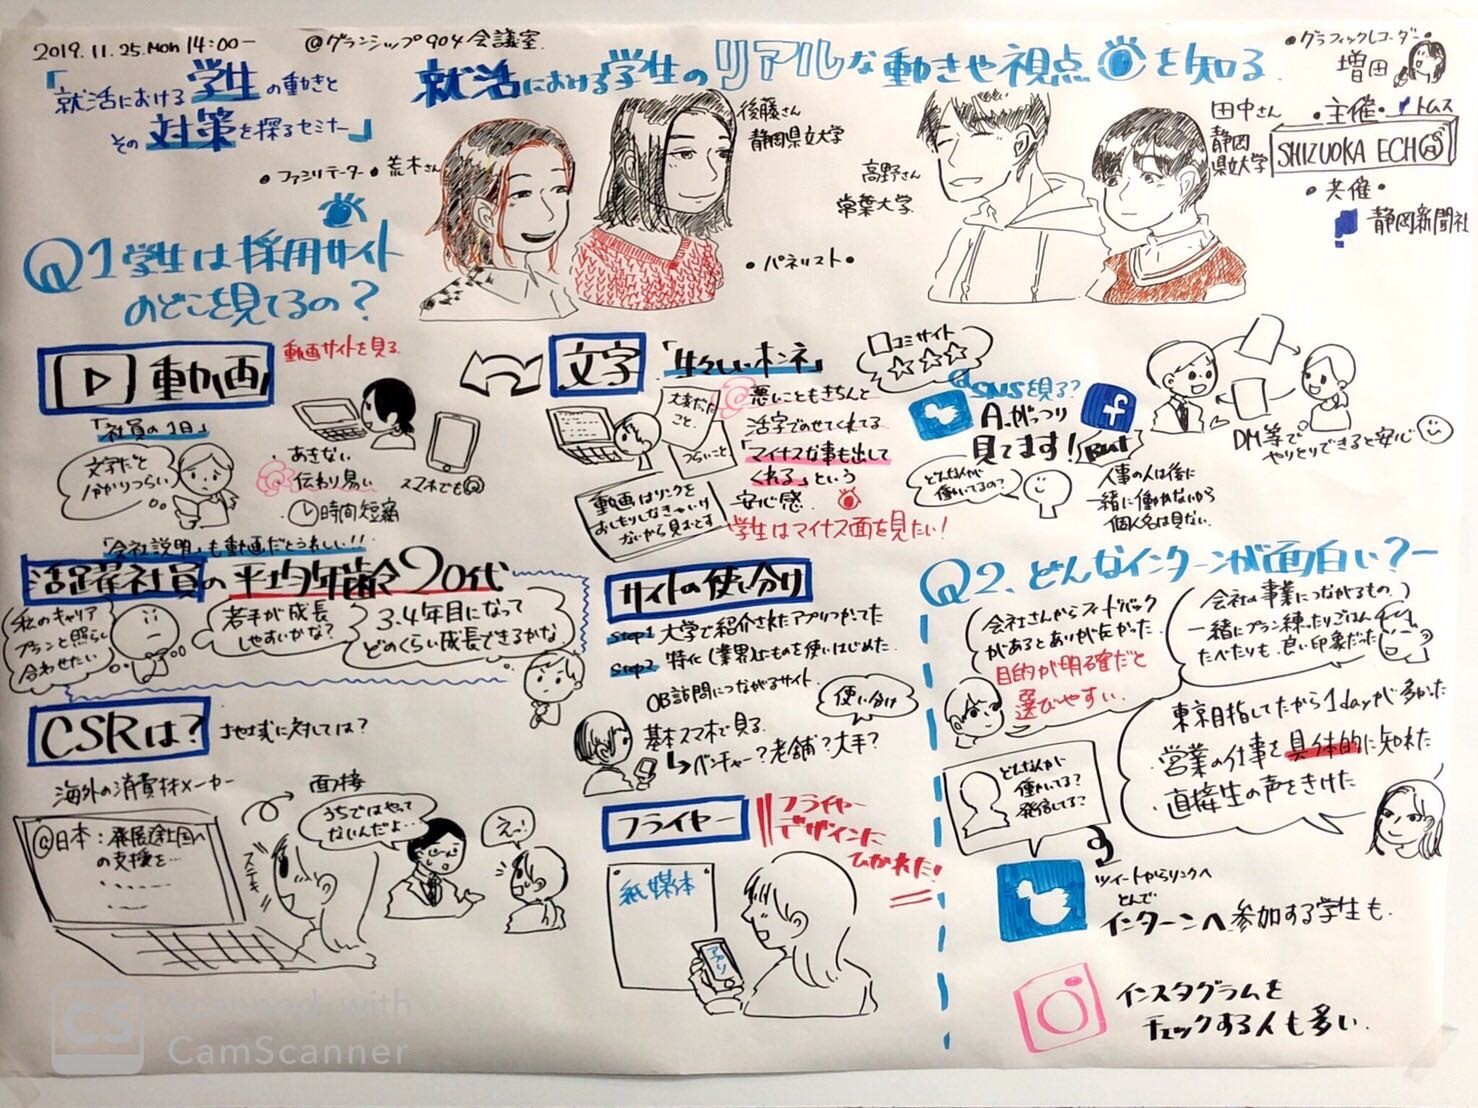 2019.11.25.Mon 14:00〜
@グランシップ904会議室.
「就活における学生の動きと
その対策を探るセミナー」
就活における学生のリアルな動きや視点を知る
・グラフィックレコーダー・
増田
・主催・トムス
SHIZUOKA ECHO
・共催・
静岡新聞社
・ファシリテーター・荒木さん
後藤さん
静岡県立大学
高野さん
常葉大学
田中さん
静岡
県立大学
・パネリスト・
Q1学生は採用サイト
のどこを見てるの?
動画
動画サイトを見る
「社員の1日」
文字だと
分かりづらい
・あきない
伝わり易い
・時間短縮
スマホでも
「会社説明」も動画だとうれしい!!
文字
「生々しいホンネ」
口コミサイト
大変だった
こと
つらいこと
悪いこともきちんと
活字でのせてくれてる
「マイナスな事も出して
くれる」という
安心感
学生はマイナス面を見たい!
動画はリンクを
おしたりしなきゃいけ
ないから見おとす
Q SNSを見る?
A.がっつり
見てます!
But
どんな人が
働いてるの?
DM等で
やりとりできると安心
人事の人は後に
一緒に働かないから
個人名は見ない.
活躍社員の平均年齢20代
私のキャリア
プランと照らし
合わせたい
若手が成長
しやすいかな?
3.4年目になって
どのくらい成長できるかな
CSRは?
地域に対しては?
海外の消費材メーカー
@日本:発展途上国へ
の支援を…
ステキ
面接
うちではやって
ないんだよ…
えっ!
サイトの使い分け
Step1 大学で紹介されたアプリつかってた
Step2 特化(業界)したものを使いはじめた.
OB訪問につながるサイト
使い分け
基本スマホで見る
↳ベンチャー?老舗?大手?
フライヤー
フライヤー
デザインに
ひかれた!
紙媒体
アプリ
Q2.どんなインターンが面白い?ー
会社さんからフィードバック
があるとありがたかった
目的が明確だと
選びやすい.
会社の事業につながるもの
一緒にプラン練ったりごはん
たべたりも、良い印象だった
東京目指してたから1dayが多かった
・営業の仕事を具体的に知れた
・直接生の声をきけた
どんな人が
働いてる?
発信してる?
ツイートからリンクへ
とんで
インターンへ参加する学生も.
インスタグラムを
チェックする人も多い.
CS
Scanned with
CamScanner